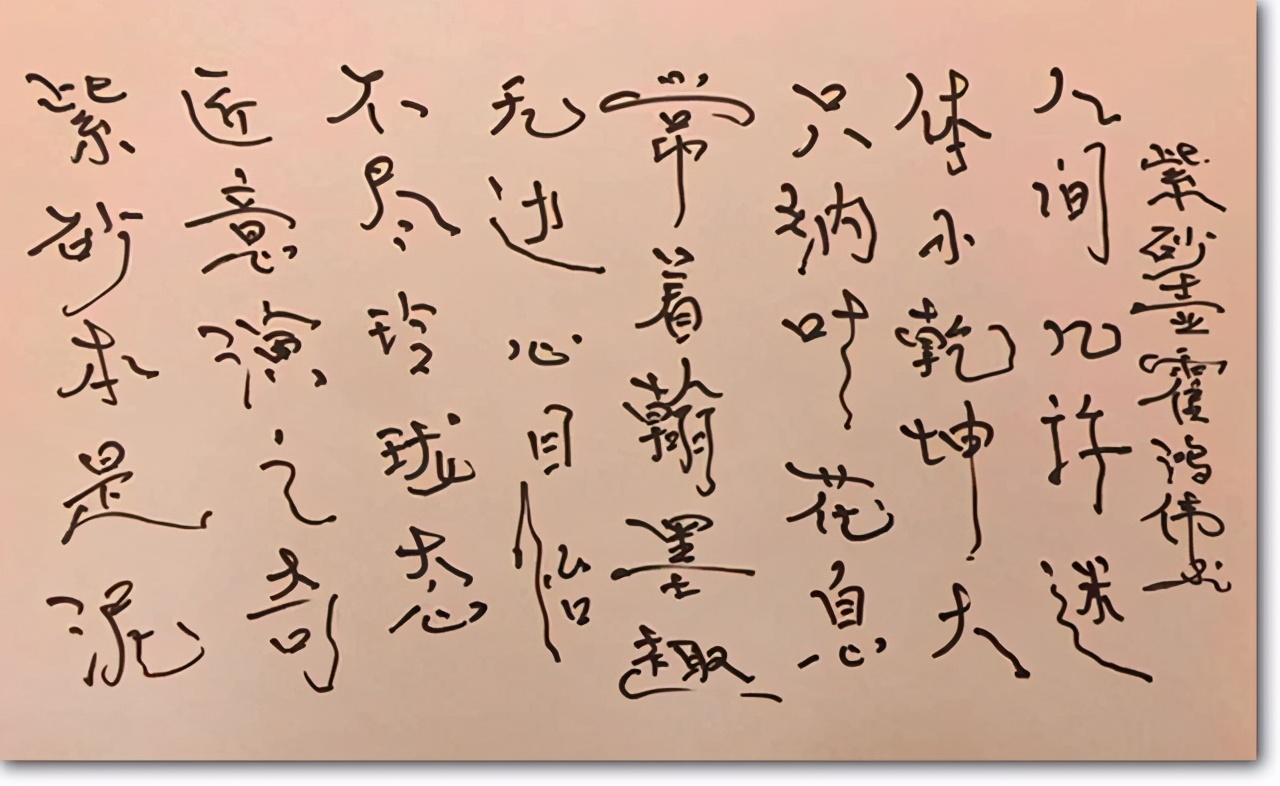 紫砂本是泥
匠意演之奇
不尽玲珑态
无过心目怡
常着翰墨趣
只纳叶花息
体小乾坤大
人间几许迷
紫砂壶霍鸿伟